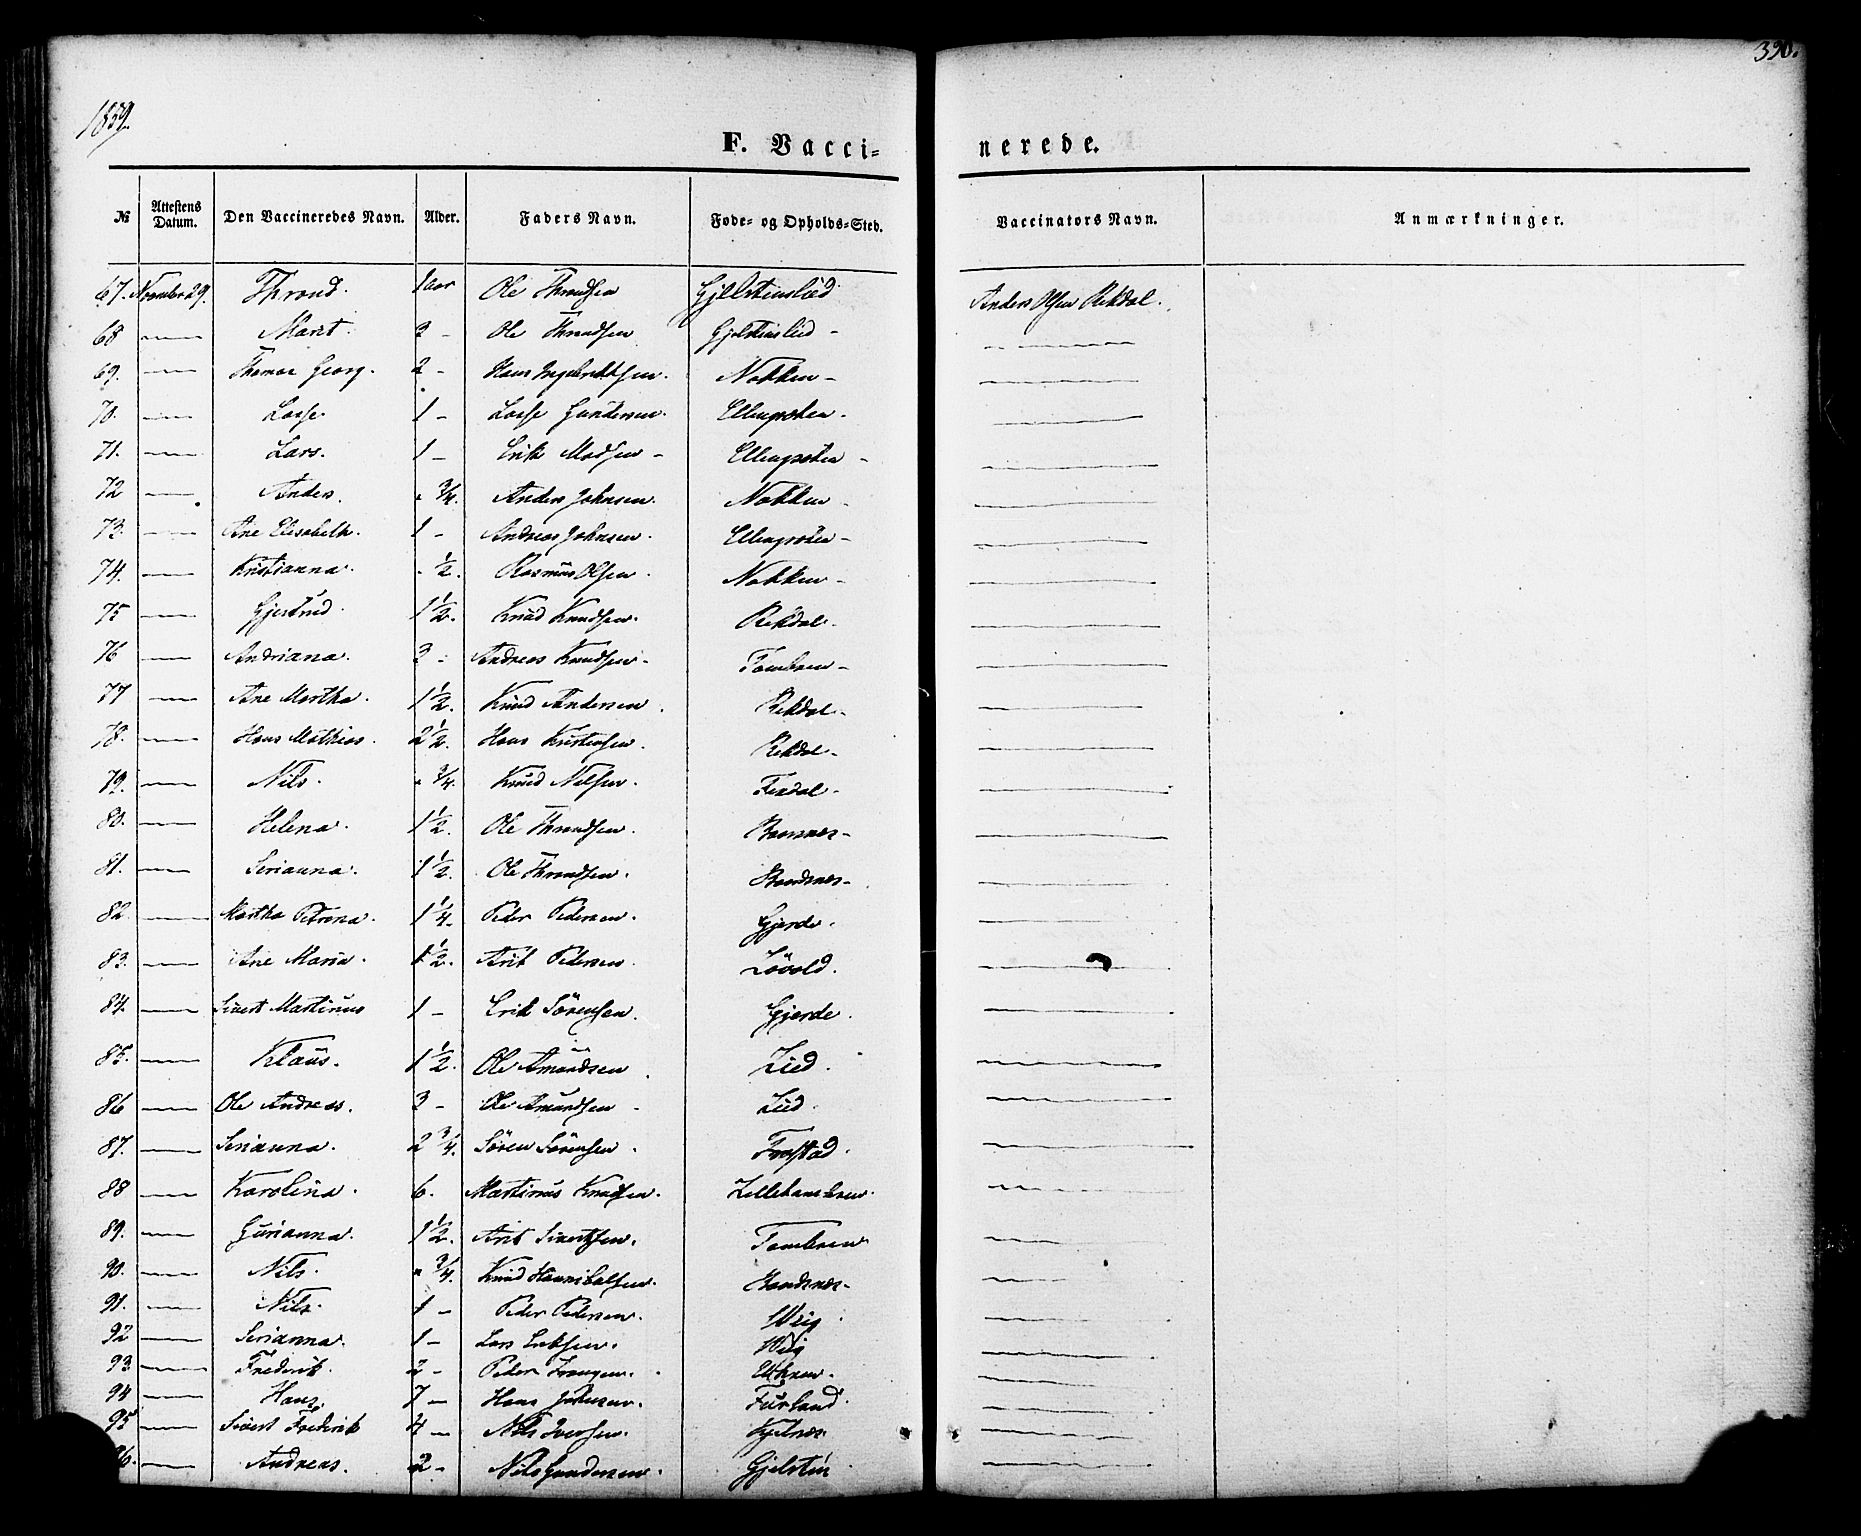 390.
1859.
F. Vacci=nerede.
№ Attestens Datum. Den Vaccineredes Navn. Alder. Faders Navn. Føde- og Opholds-Sted. Vaccinators Navn. Anmærkninger.
67. November 29. Thrond. 1 aar Ole Throndsen Gjelstenslied Anders Olsen Rekdal.
68 — Marit. 3 - Ole Throndsen Gjelstenslied - —
69. — Thomas Georg. 2 - Hans Ingebrektsen. Nakken - —
70. — Lasse. 1 - Lasse Gundersen. —
71. — Lars. 1 - Erik Madsen - —
72 — Anders. " 3/4. Anders Johnsen. Nakken - —
73. — Ane Elisabeth. 1 - Andreas Johnsen. —
74. — Kristianna. " 1/2. Rasmus Olsen. Nakken - —
75 — Gjertrud. 1 1/2. Knud Knudsen. Rekdal. —
76 — Andriana. 3 - Andreas Knudsen - —
77 — Ane Martha. 1 1/2. Knud Andersen. Rekdal - —
78. — Hans Mathias. 2 1/2. Hans Kristensen. Rekdal - —
79. — Nils. " 3/4. Knud Nilsen. —
80. — Helena. 1 1/2. Ole Throndsen. —
81. — Serianna. 1 1/2. Ole Throndsen. —
82. — Martha Petrona. 1 1/4. Peder Pedersen. Gjerde. —
83. — Ane Maria. 1 1/2. Arit Pedersen. Løvold. —
84. — Sivert Martinus 1 - Erik Sörensen. Gjerde. —
85. — Klaus. 1 1/2. Ole Amundsen. Lied. —
86 — Ole Andreas. 3 - Ole Amundsen - Lied. —
87. — Serianna. 2 3/4. Sören Sörensen. Frostad. —
88 — Karolina. 6. Martinus Knudsen. —
89. — Gurianna. 1 1/2. Arit Sivertsen. —
90. — Nils. " 3/4. Knud Hannibalsen. —
91. — Nils. 1 - Peder Pedersen. —
92 — Serianna. 1 - Lars Eriksen. —
93. — Frederik. 2 - Peder —
94 — Hans. 7 - Hans Johnsen. Furland. —
95 — Sivert Frederik 4 - Nils Iversen. Kjelnes. —
96. — Andreas. 2 - Nils Gundersen. Gjelsten. —